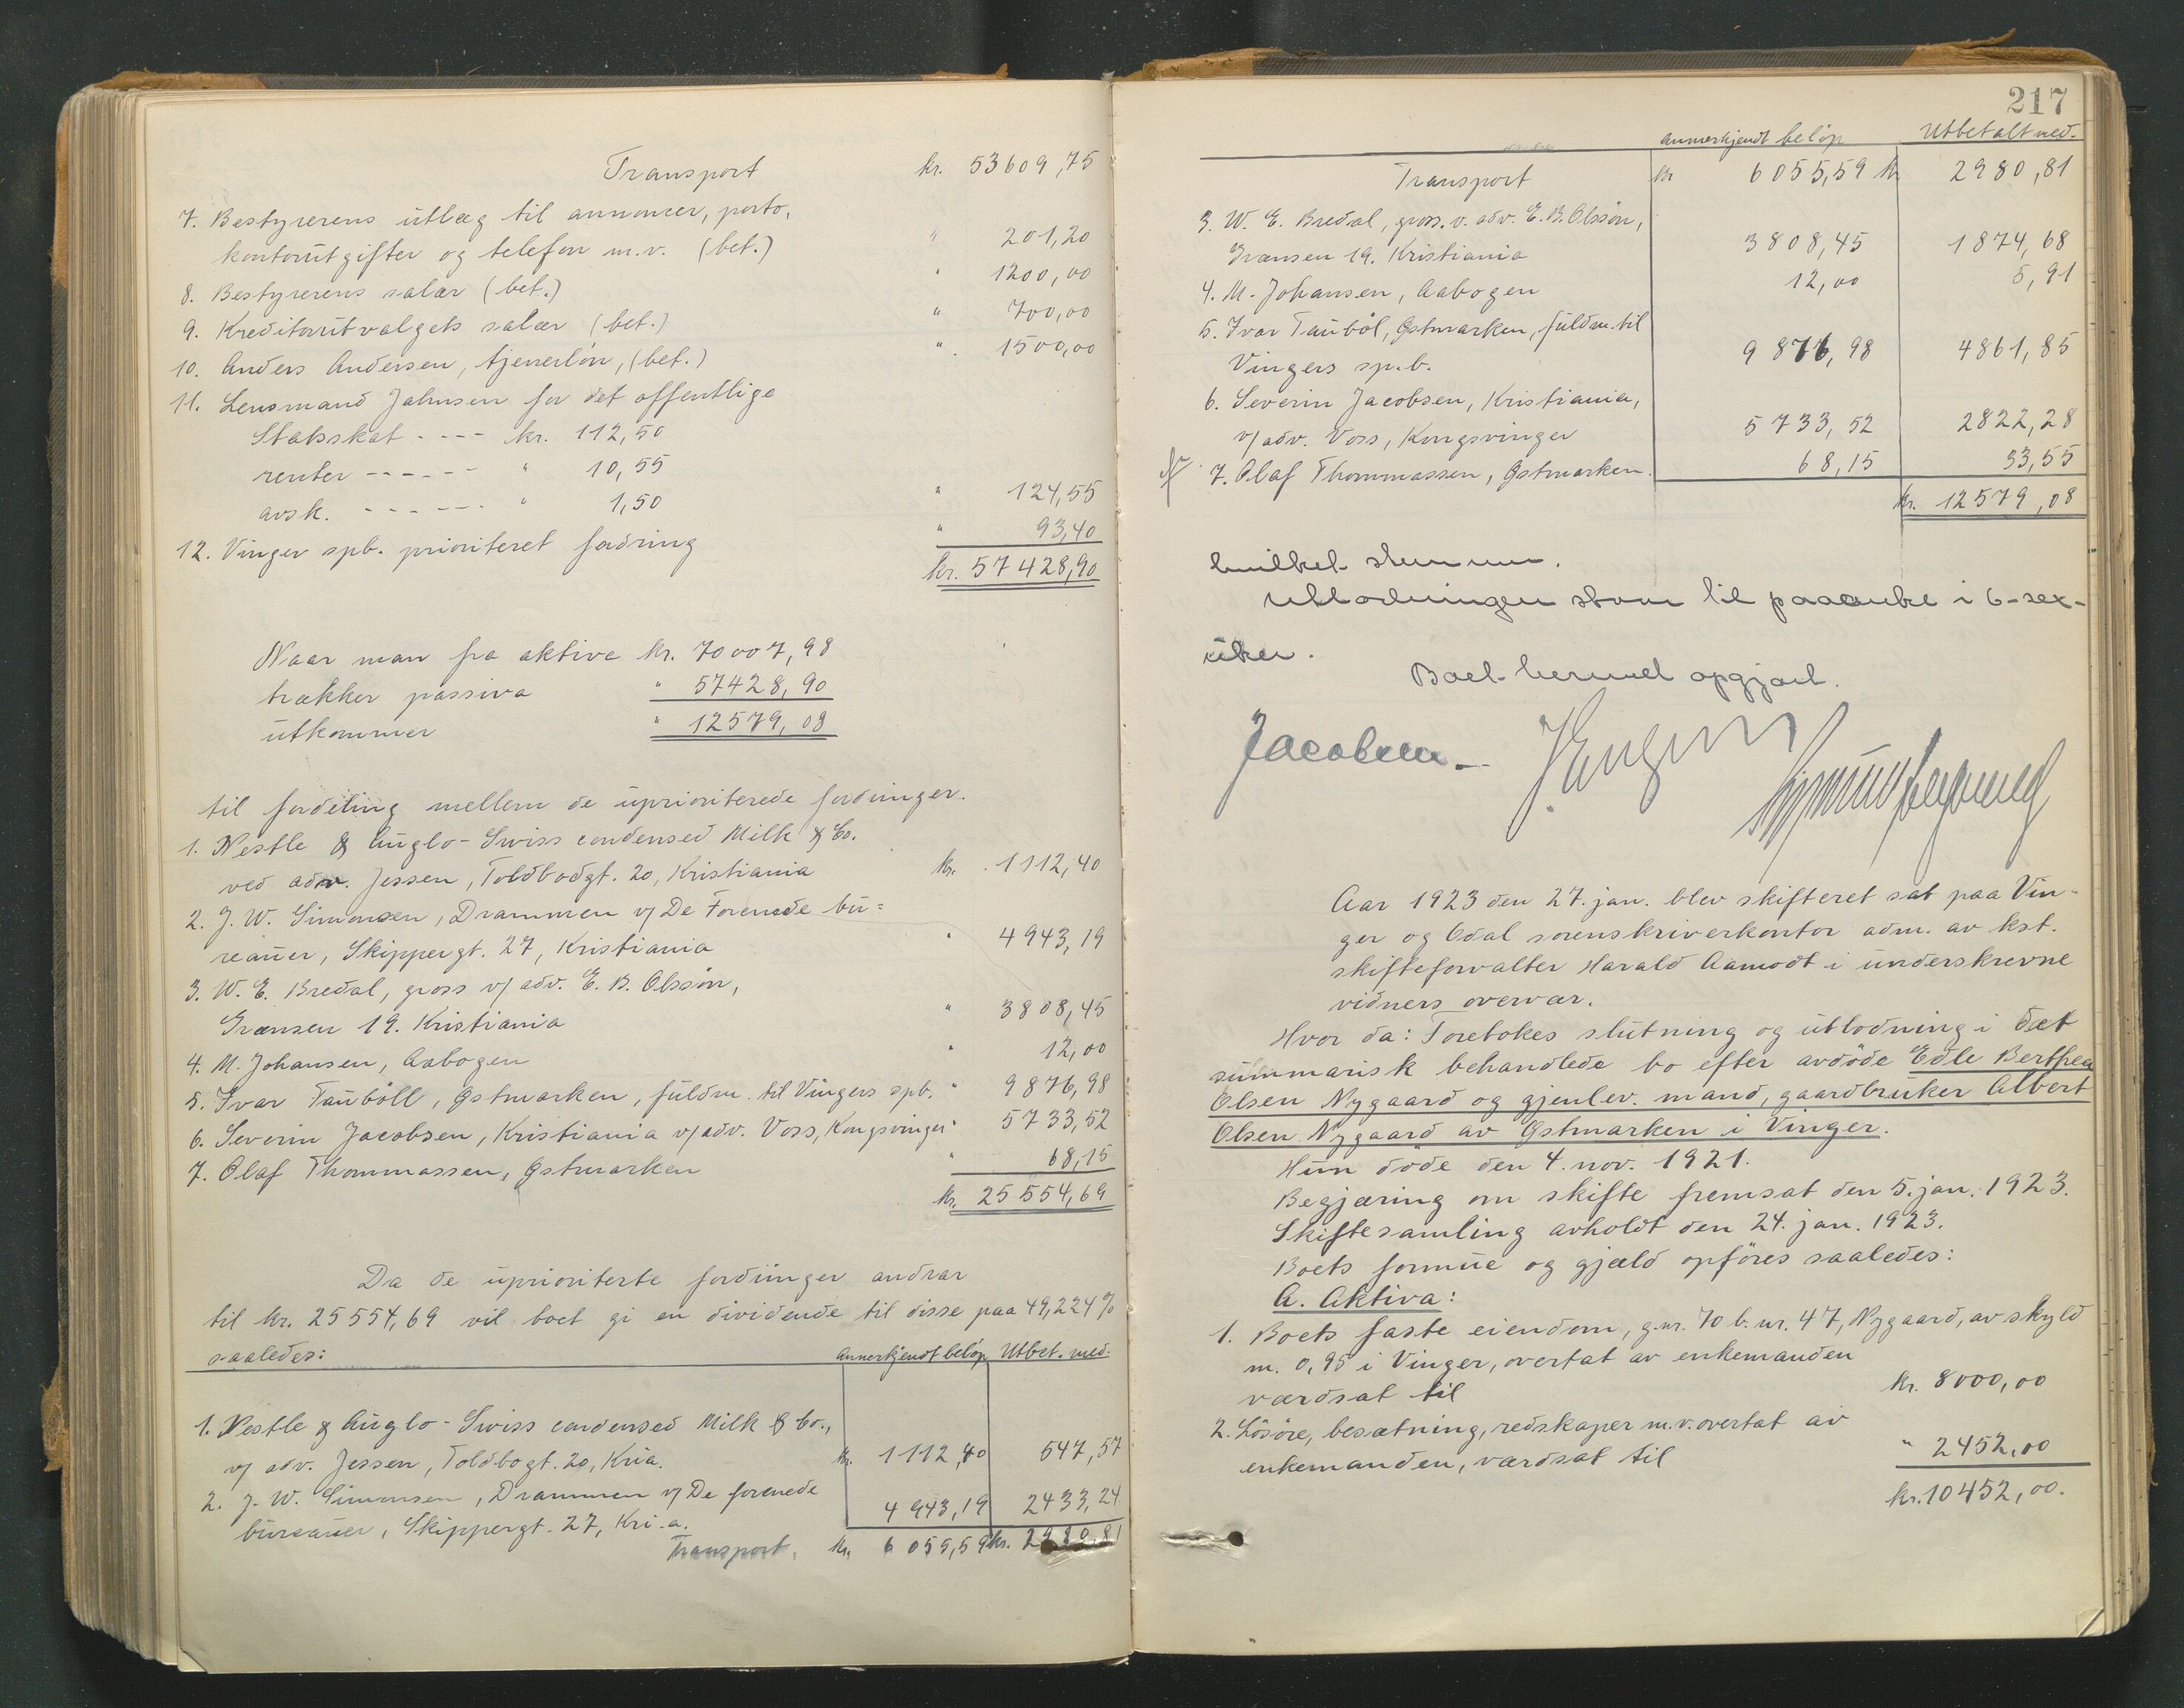 Transport kr. 53609,75
7. Bestyrerens utlæg til annoncer, porto,
kontorutgifter og telefon m.v. (bet.) " 201,20
8. Bestyrerens salær (bet.) " 1200,00
9. Kreditorutvalgets salær (bet.) " 700,00
10. Anders Andersen, tjenerløn, (bet.) " 1500,00
11. Lensmand Jahnsen for det offentlige
Statsskat ---- kr. 112,50
renter ------ " 10,55
avsk. ------- " 1,50 " 124,55
12. Vinger spb. prioriteret fordring " 93,40
kr. 57428,90
Naar man fra aktiva kr. 70007,98
trækker passiva " 57428,90
utkommer " 12579,08
til fordeling mellem de uprioriterede fordringer.
1. Nestle & Anglo-Swiss condensed Milk & Co.
ved adv. Jessen, Toldbodgt. 20, Kristiania kr. 1112,40
2. J. W. Simonsen, Drammen v/ De Forenede bu=
reauer, Skippergt. 27, Kristiania " 4943,19
3. W. E. Bredal, gross v/ adv. E. B. Olssön,
Grænsen 19. Kristiania " 3808,45
4. M. Johansen, Aabogen " 12,00
5. Ivar Tauböll, Østmarken, fuldm. til Vingers spb. " 9876,98
6. Severin Jacobsen, Kristiania v/adv. Voss, Kongsvinger " 5733,52
7. Olaf Thommassen, Østmarken " 68,15
kr. 25554,69
Da de uprioriterte fordringer andrar
til kr. 25554,69 vil boet gi en dividende til disse paa 49,224%
saaledes: Annerkjendt beløp Utbet. med.
1. Nestle & Anglo-Swiss condensed Milk & Co.,
v/ adv. Jessen, Toldbogt. 20, Kria. kr. 1112,40 547,57
2. J. W. Simonsen, Drammen v/ De forenede
bureauer, Skippergt. 27, Kri.a. 4943,19 2433,24
Transport. kr. 6055,59 kr. 2980,81
217
Annerkjendt beløp Utbetalt med.
Transport kr 6055,59 kr 2980,81
3. W. E. Bredal, gross. v. adv. E. B. Olssön,
Grænsen 19. Kristiania 3808,45 1874,68
4. M. Johansen, Aabogen 12,00 5,91
5. Ivar Tauböl, Østmarken, fuldm. til
Vingers sp.b. 9876,98 4861,85
6. Severin Jacobsen, Kristiania,
v/ adv. Voss, Kongsvinger 5733,52 2822,28
7. Olaf Thommassen, Østmarken. 68,15 33,55
kr. 12579,08
hvilket stemmer.
Utlodningen staar til paaanke i 6-sex-
uker.
Boet hermed opgjort.
Jacobsen
Aar 1923 den 27. jan. blev skifteret sat paa Vin-
ger og Odal sorenskriverkontor adm. av kst.
skifteforvalter Harald Aamodt i underskrevne
vidners overvær.
Hvor da: Foretokes slutning og utlodning i det
summarisk behandlede bo efter avdöde Edle Berthea
Olsen Nygaard og gjenlev. mand, gaardbruker Albert
Olsen Nygaard av Østmarken i Vinger.
Hun döde den 4. nov. 1921.
Begjæring om skifte fremsat den 5. jan. 1923.
Skiftesamling avholdt den 24. jan. 1923.
Boets formue og gjæld opföres saaledes:
A. Aktiva:
1. Boets faste eiendom, g.nr. 70 b.nr. 47, Nygaard, av skyld
m. 0,95 i Vinger, overtat av enkemanden
værdsat til kr. 8000,00
2. Lösöre, besætning, redskaper m.v. overtat av
enkemanden, værdsat til " 2452,00
kr. 10452,00.